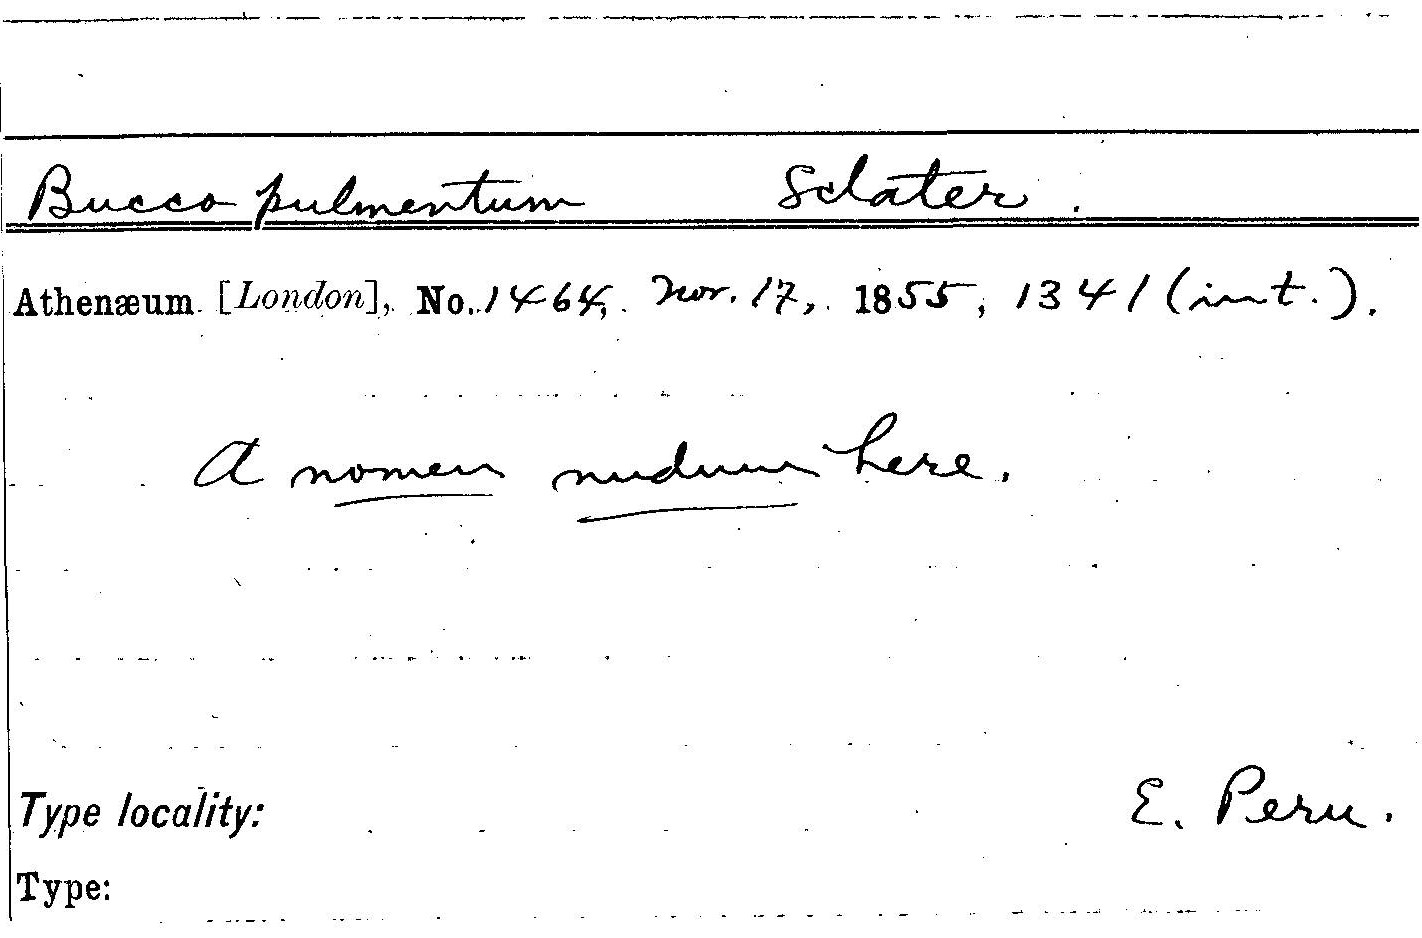 Bucco pulmentum Sclater.
Athenæum [London], No. 1464, Nov. 17, 1855, 1341 (int.).
A nomen nudum here.
Type locality: E. Peru.
Type: